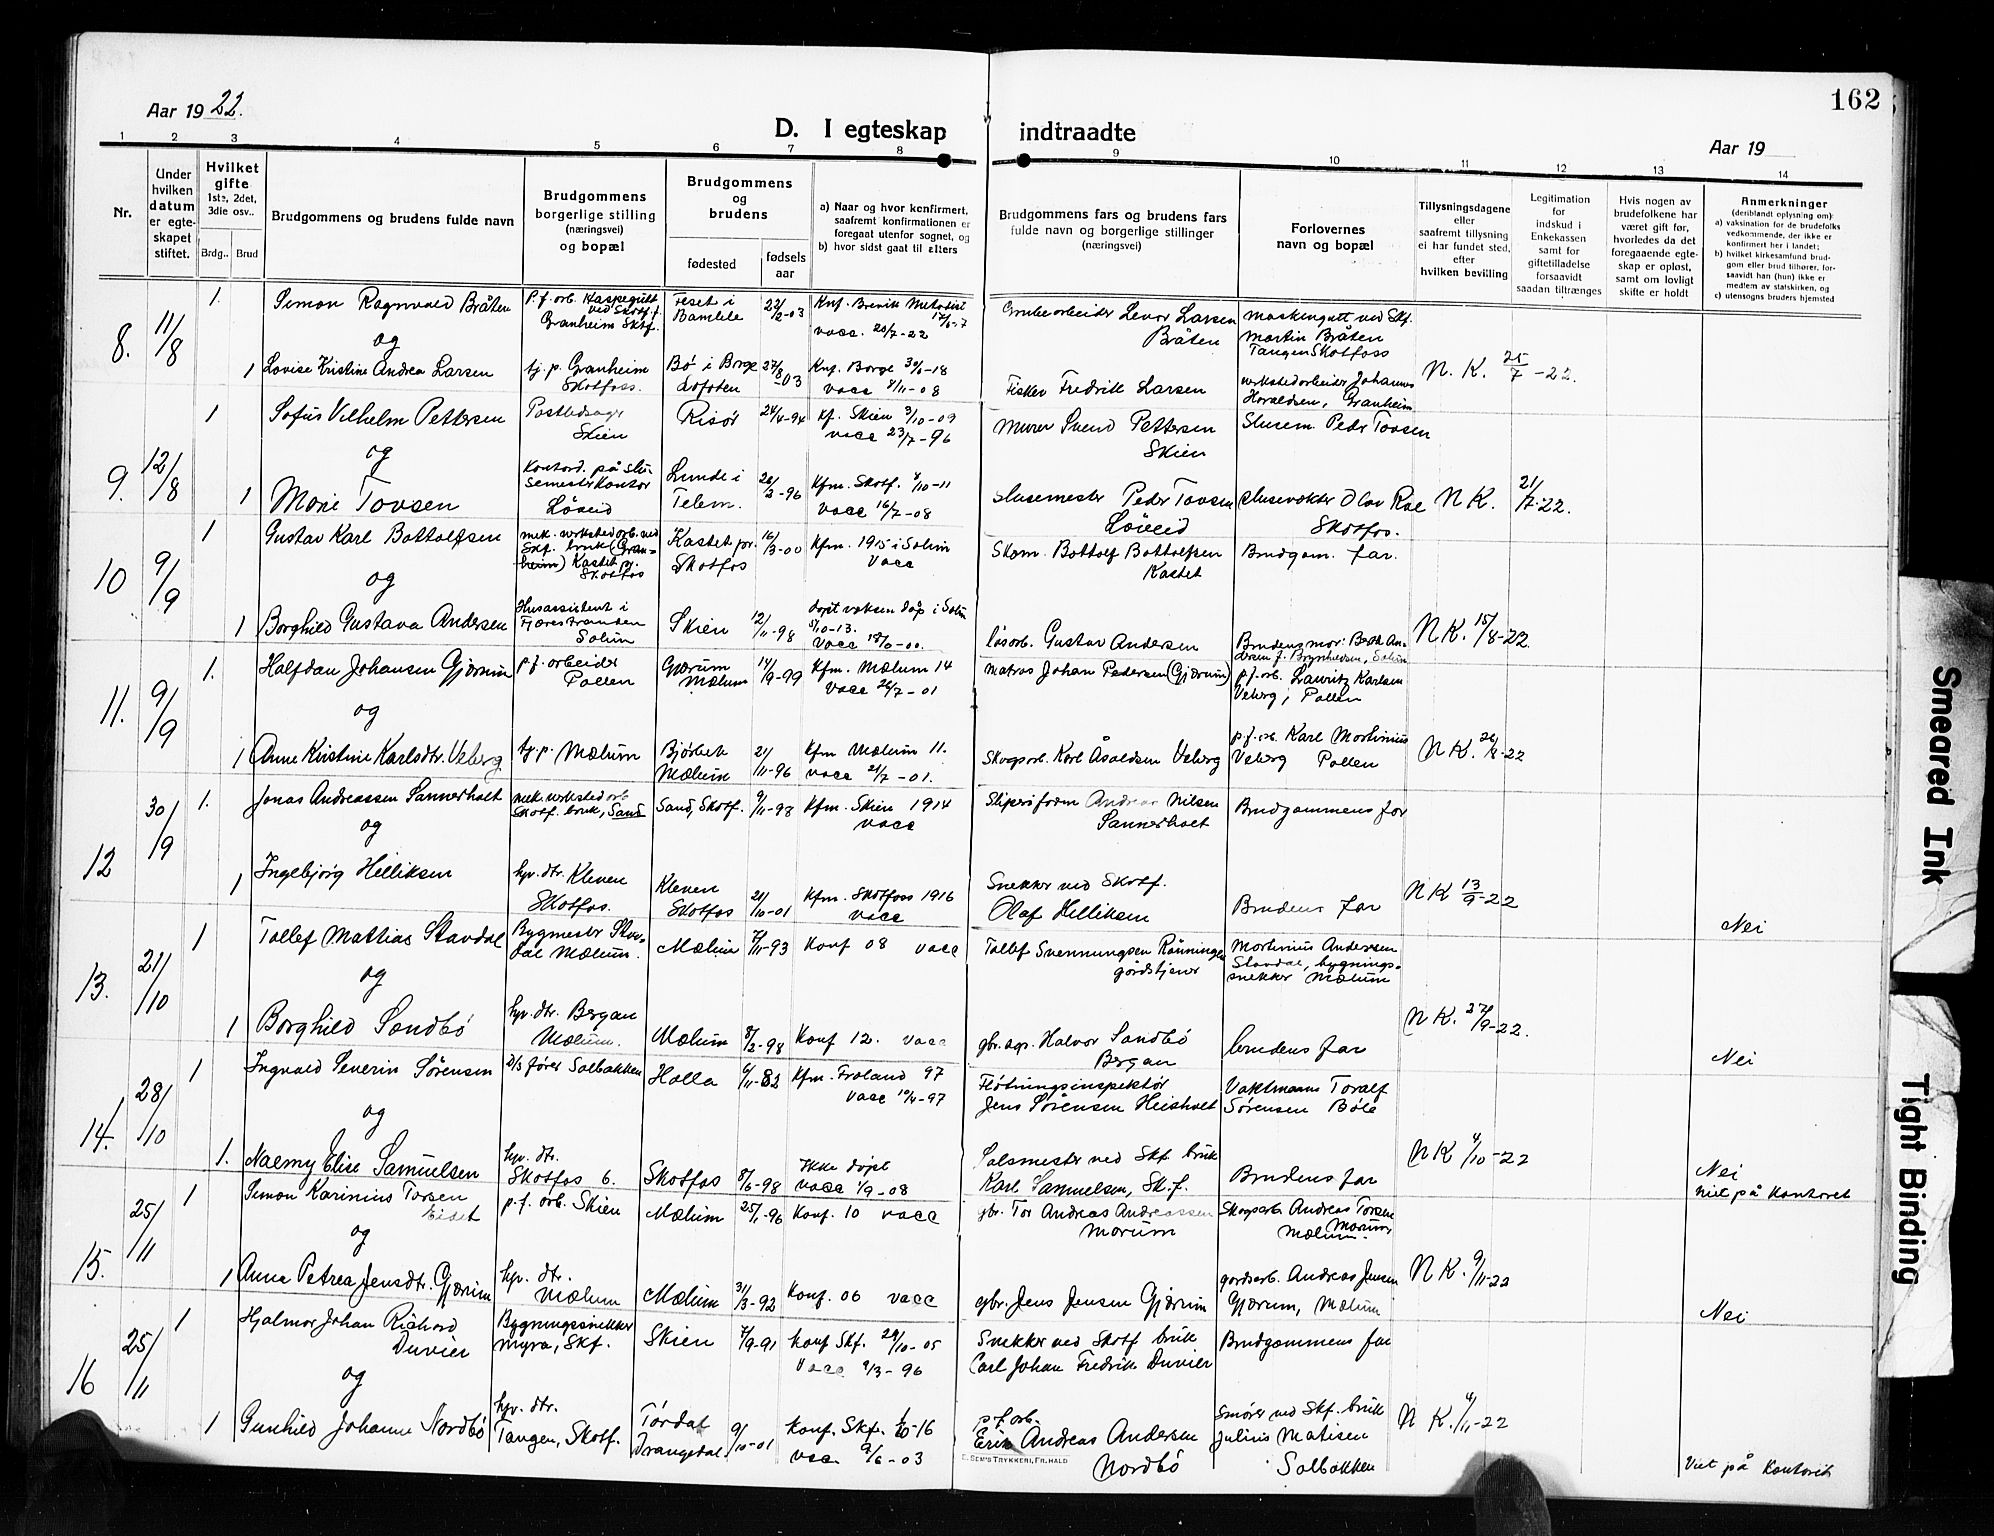 162
Aar 1922.
D. I egteskap indtraadte
Aar 19
1 2 3 4 5 6 7 8 9 10 11 12 13 14
Nr.
Under hvilken datum er egteskapet stiftet.
Hvilket gifte 1ste, 2det, 3die osv..
Brdg.. Brud
Brudgommens og brudens fulde navn
Brudgommens borgerlige stilling (næringsvei) og bopæl
Brudgommens og brudens
fødested
fødsels aar
a) Naar og hvor konfirmert, saafremt konfirmationen er foregaat utenfor sognet, og
b) hvor sidst gaat til alters
Brudgommens fars og brudens fars fulde navn og borgerlige stillinger (næringsvei)
Forlovernes navn og bopæl
Tillysningsdagene eller saafremt tillysning ei har fundet sted, efter hvilken bevilling
Legitimation for indskud i Enkekassen samt for giftetilladelse forsaavidt saadan tiltrænges
Hvis nogen av brudefolkene har været gift før, hvorledes da det foregaaende egteskap er opløst, samt om lovligt skifte er holdt
Anmerkninger (deriblandt oplysning om):
a) vaksination for de brudefolks vedkommende, der ikke er konfirmert her i landet;
b) hvilket kirkesamfund brudgom eller brud tilhører, forsaavidt han (hun) ikke er medlem av statskirken, og
c) utensogns bruders hjemsted
8. 11/8 1. Simon Ragnvald Bråten
p.f. arb. Kaspegutt ved Skotf. f. Granheim Skf.
Feset i Bamble 22/2-03
Knf. Brevik Metodist 17/6-17 vacc. 20/7-22
Grubearbeider Levor Larsen Bråten
maskingutt ved Skf. Martin Bråten Tangen Skotfoss
og
1 Lovise Kristine Andrea Larsen
tj. p. Granheim Skotfoss.
Bø i Borge Lofoten 27/8-03
Knf. Borge 30/6-18 vacc 4/11-08
Fisker Fredrik Larsen
verkstedarbeider Johannes Haraldsen, Granheim
N. K. 25/7-22.
9. 12/8 1 Sofus Vilhelm Pettersen
Postbedsagr Skien
Risør 24/4-94
kf. Skien 3/10-09 vacc 23/7-96
Murer Svend Pettersen Skien
Slusem. Peder Tovsen
og
1 Marie Tovsen
Kontord. på Slusemesterkontor Løveid
Lunde i Telem. 26/2-96
Kfm. Skotf. 4/10-11 vacc 16/7-08
Slusemester Peder Tovsen Løveid
Slusevokter Olav Roe Skotfos.
N K. 21/7-22.
10 9/9 1 Gustav Karl Bottolfsen
mek. verkstedarb. ved Skf. bruk (Granheim) Kastet pr. Skotfos
Kastet pr. Skotfos 16/3-00
Kfm. 1915 i Solum vacc
Skom. Bottolf Bottolfsen Kastet
Brudgom. far.
og
1 Borghild Gustava Andersen
Husassistent i Fjærestranden Solum
Skien 12/11-98
døpt voksen dåp i Solum 5/10-13. Vacc 18/6-00.
løsarb. Gustav Andersen
Brudens mor Berth. Andersen f. Brynhildsen, Solum
N K. 15/8-22.
11. 9/9 1. Halfdan Johansen Gjærum
p.f. arbeider Pollen
Gjærum Mælum 14/9-99
Kfm. Mælum 14 vacc 26/7-01
matros Johan Pedersen (Gjærum)
p.f. arb. Lauritz Karlsen Veberg, Pollen
og
1 Anne Kristine Karlsdtr. Veberg
tj. p. Mælum
Bjørbek Mælum 21/11-96
Kfm Mælum 11. vacc 21/7-01.
Skogsarb. Karl Åsoldsen Veberg
p.f. arb. Karl Martinius Veberg Pollen
N K. 26/8-22
12 30/9 1. Jonas Andreassen Sannerholt
mek. verksted arb. Skotf. bruk, Sand
Sand, Skotf. 9/11-98
Kfm. Skien 1914 vacc
Sliperiform Andreas Nilsen Sannerholt
Brudgommens far
og
1 Ingebjørg Hilliksen
hjv. dtr. Kleven Skotfos.
Kleven Skotfos 21/10-01
Kfm. Skotfoss 1916 vacc
Snekker ved Skotf. Olaf Hilliksen
Brudens far
N K 13/9-22
Nei
13. 21/10 1 Tollef Mattias Stavdal
Bygmester Stavdal Mælum.
Mælum 7/11-93
Konf 08 vacc
Tollef Svennungsen Rønningen gårdstjener
Martinius Andersen Stavdal, bygningssnekker Mælum
og
1 Borghild Sandbø
hjv. dtr. Bergan Mælum.
Mælum 8/2-98
Konf 12. vacc
gbr. agr. Halvor Sandbø Bergan
brudens far
N K. 27/9-22.
Nei
14. 28/10 1 Ingvald Severin Sørensen
D/S fører Solbakken
Holla 4/11-82
Kfm. Froland 97 vacc 19/4-97
Fløtningsinspektør Jens Sørensen Heisholt
Vaktmann Toralf Sørensen Böle
og
1. Naemy Elise Samuelsen
hjv. dtr. Skotfos 6.
Skotfos 8/6-98
Ikke døpt vacc 1/9-08
Salsmester ved Skf. bruk Karl Samuelsen, Sk.f.
Brudens far
N K 4/10-22
Nei
Viet på kontoret
15. 25/11 1 Simon Karinius Torsen Eidet
p.f. arb. Skien
Mælum 25/1-96
Konf. 10 vacc
gbr. Tor Andreas Andreassen Mørum
Skogsarb. Andreas Torsen Mørum, Mælum.
og
1 Anna Petrea Jensdtr. Gjærum
hjv. dtr. Mælum
Mælum 31/3-92
Konf. 06 vacc
gbr. Jens Jensen Gjærum
gardsarb. Andreas Jensen Gjærum, Mælum
N K. 9/11-22
Nei
16 25/11 1 Hjalmar Johan Richard Duvier
Bygningssnekker Myra, Skf.
Skien 7/9-91
Konf Skf. 29/10-05 Vacc 9/3-96
Snekker ved Skotf bruk Carl Johan Fredrik Duvier
Brudgommens far
og
1 Gunhild Johanne Nordbø
hjv. dtr. Tangen, Skotf.
Tørdal Drangedal 9/10-01
Konf. Skf. 1/10-16 vacc 9/6-03
p.f. arb. Erik Andreas Andersen Nordbø
Smører ved Skf. bruk Julius Matisen Solbakken
N K. 4/11-22
Viet på kontoret
E. SEM'S TRYKKERI, FR.HALD
Smeared Ink
Tight Binding